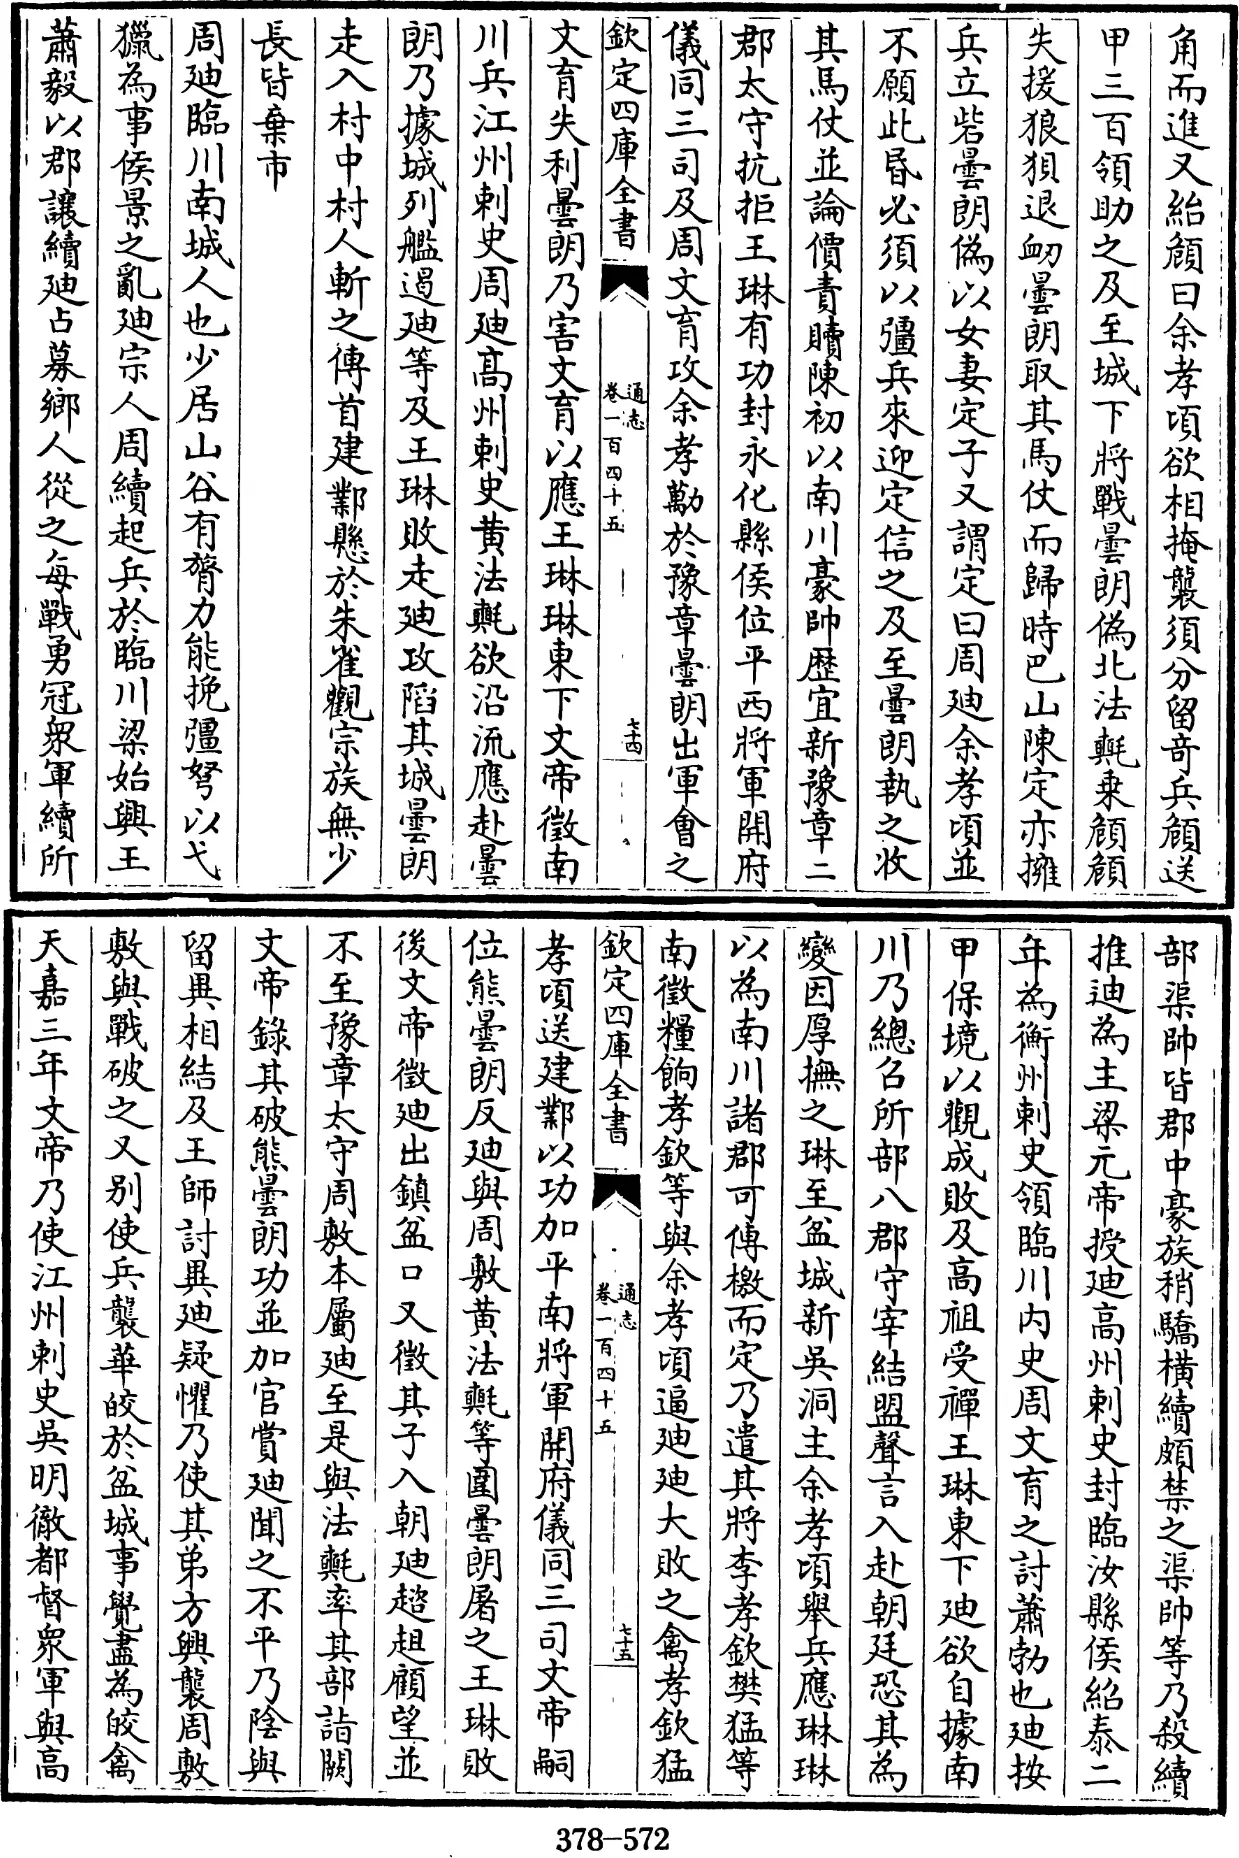 角而進又紿頠曰余孝頃欲相掩襲須分留奇兵頠送
甲三百領助之及至城下將戰曇朗偽北法𣰰乗頠頠
失援狼狽退衂曇朗取其馬仗而歸時巴山陳定亦擁
兵立砦曇朗偽以女妻定子又謂定曰周廸余孝頃並
不願此昏必須以彊兵來迎定信之及至曇朗執之收
其馬仗並論價責贖陳初以南川豪帥歴宜新豫章二
郡太守抗拒王琳有功封永化縣侯位平西將軍開府
儀同三司及周文育攻余孝勱於豫章曇朗出軍㑹之
欽定四庫全書
通志
卷一百四十五
七十四
文育失利曇朗乃害文育以應王琳琳東下文帝徵南
川兵江州刺史周廸高州刺史黄法𣰰欲沿流應赴曇
朗乃據城列艦遏廸等及王琳敗走廸攻陷其城曇朗
走入村中村人斬之傳首建鄴懸於朱雀觀宗族無少
長皆棄市
周廸臨川南城人也少居山谷有膂力能挽彊弩以弋
獵為事侯景之亂廸宗人周續起兵於臨川梁始興王
蕭毅以郡讓續廸占募鄉人從之每戰勇冠衆軍續所
部渠帥皆郡中豪族稍驕橫續頗禁之渠帥等乃殺續
推迪為主梁元帝授廸高州刺史封臨汝縣侯紹泰二
年為衡州刺史領臨川内史周文育之討蕭勃也廸按
甲保境以觀成敗及高祖受禪王琳東下廸欲自據南
川乃總召所部八郡守宰結盟聲言入赴朝廷恐其為
變因厚撫之琳至盆城新吳洞主余孝頃舉兵應琳琳
以為南川諸郡可傳檄而定乃遣其將李孝欽樊猛等
南徵糧餉孝欽等與余孝頃逼廸廸大敗之禽孝欽猛
欽定四庫全書
通志
卷一百四十五
七十五
孝頃送建鄴以功加平南將軍開府儀同三司文帝嗣
位熊曇朗反廸與周敷黄法𣰰等圍曇朗屠之王琳敗
後文帝徵廸出鎮盆口又徵其子入朝廸趑趄顧望並
不至豫章太守周敷本屬廸至是與法𣰰率其部詣闕
文帝錄其破熊曇朗功並加官賞廸聞之不平乃陰與
留異相結及王師討異廸疑懼乃使其弟方興襲周敷
敷與戰破之又别使兵襲華皎於盆城事覺盡為皎禽
天嘉三年文帝乃使江州刺史吳明徹都督衆軍與高
378-572